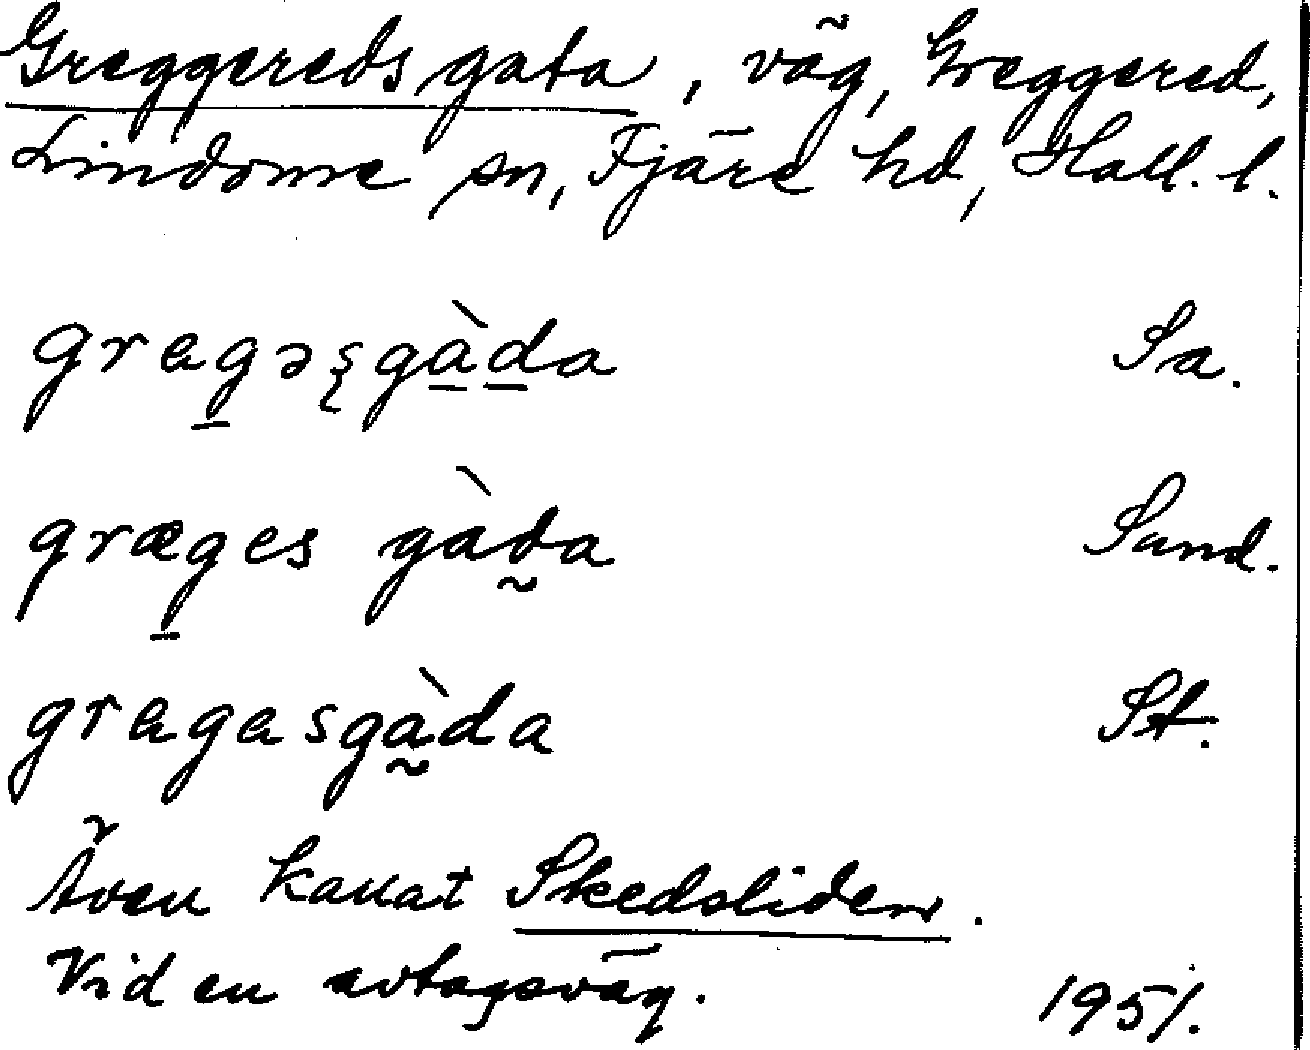 Greggereds gata, väg, Greggered,
Lindome sn, Fjäre hd, Hall. l.
gragəsgàda Sa.
græges gàda Sand.
gragasgàda St.
Även kallat Skedsliden.
Vid en avtagsväg. 1951.